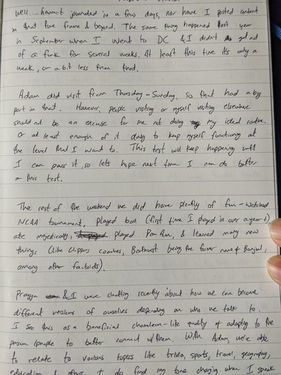 Well... haven't journaled in a few days, nor have I posted content
in that time frame & beyond. The same thing happened last year
in September when I went to DC & I didn't get out
of a funk for several weeks. At least this time its only a
week, or a bit less than that.
Adam did visit from Thursday - Sunday, so that had a big
part in that. However, people visiting or myself visiting elsewhere
should not be an excuse for me not doing my ideal routine
or at least enough of it daily to keep myself functioning at
the level that I want to. This test will keep happening until
I can pass it, so lets hope next time I can do better
on this test.
The rest of the weekend we did have plenty of fun - watched
NCAA tournament, played ball (first time I played in over a year!)
ate majestically, played Pac-Man, & learned many new
things (like Clippers combos, Baltimore being the former name of Banjul,
among other factoids).
& I were chatting recently about how we can become
different versions of ourselves depending on who we talk to.
I see this as a beneficial chameleon-like quality of adapting to the
person/people to better connect w/ them. With Adam, we're able
to relate to various topics like trivia, sports, travel, geography,
education & I do find my tone changing when I speak